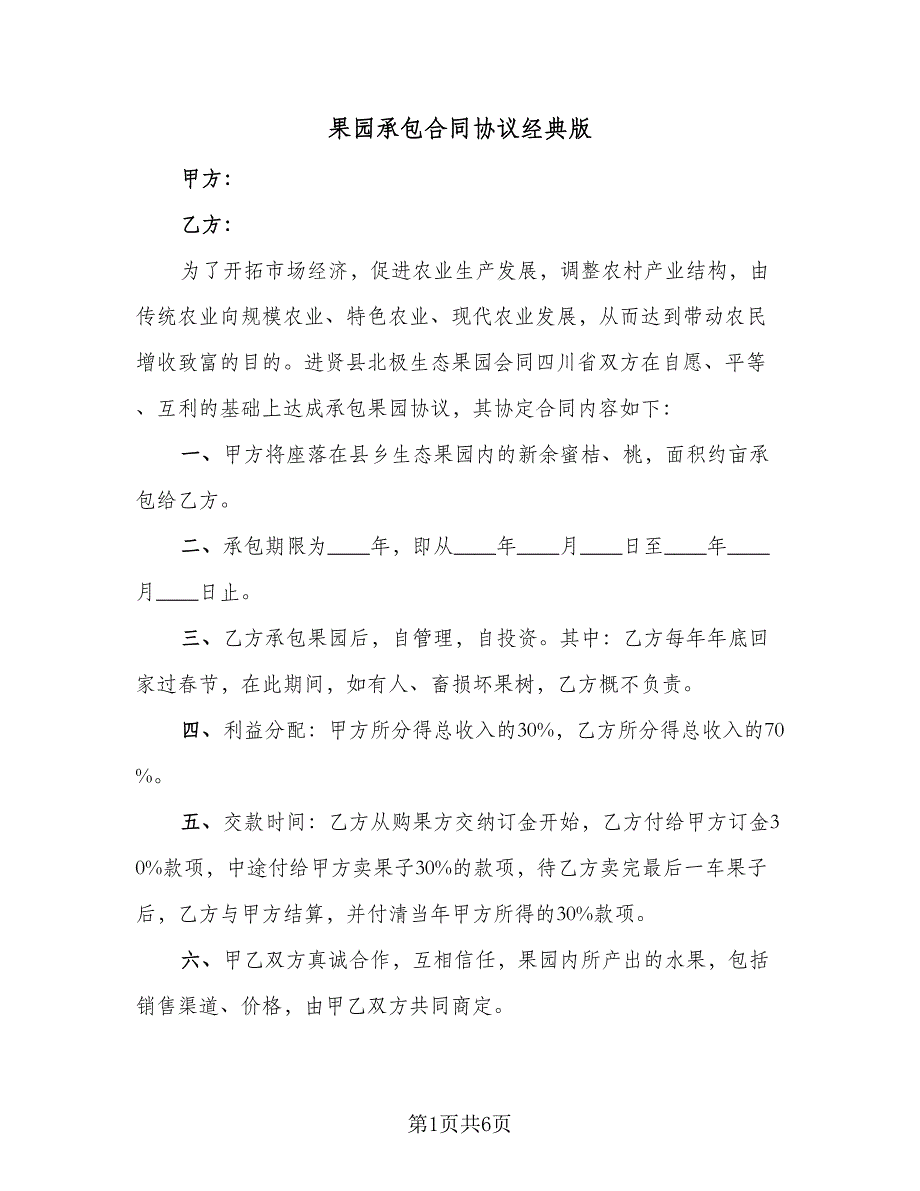 果园承包合同协议经典版
甲方：
乙方：
为了开拓市场经济，促进农业生产发展，调整农村产业结构，由
传统农业向规模农业、特色农业、现代农业发展，从而达到带动农民
增收致富的目的。进贤县北极生态果园会同四川省双方在自愿、平等
、互利的基础上达成承包果园协议，其协定合同内容如下：
一、甲方将座落在县乡生态果园内的新余蜜桔、桃，面积约亩承
包给乙方。
二、承包期限为____年，即从____年____月____日至____年____
月____日止。
三、乙方承包果园后，自管理，自投资。其中：乙方每年年底回
家过春节，在此期间，如有人、畜损坏果树，乙方概不负责。
四、利益分配：甲方所分得总收入的30%，乙方所分得总收入的70
%。
五、交款时间：乙方从购果方交纳订金开始，乙方付给甲方订金3
0%款项，中途付给甲方卖果子30%的款项，待乙方卖完最后一车果子
后，乙方与甲方结算，并付清当年甲方所得的30%款项。
六、甲乙双方真诚合作，互相信任，果园内所产出的水果，包括
销售渠道、价格，由甲乙双方共同商定。
第1页共6页